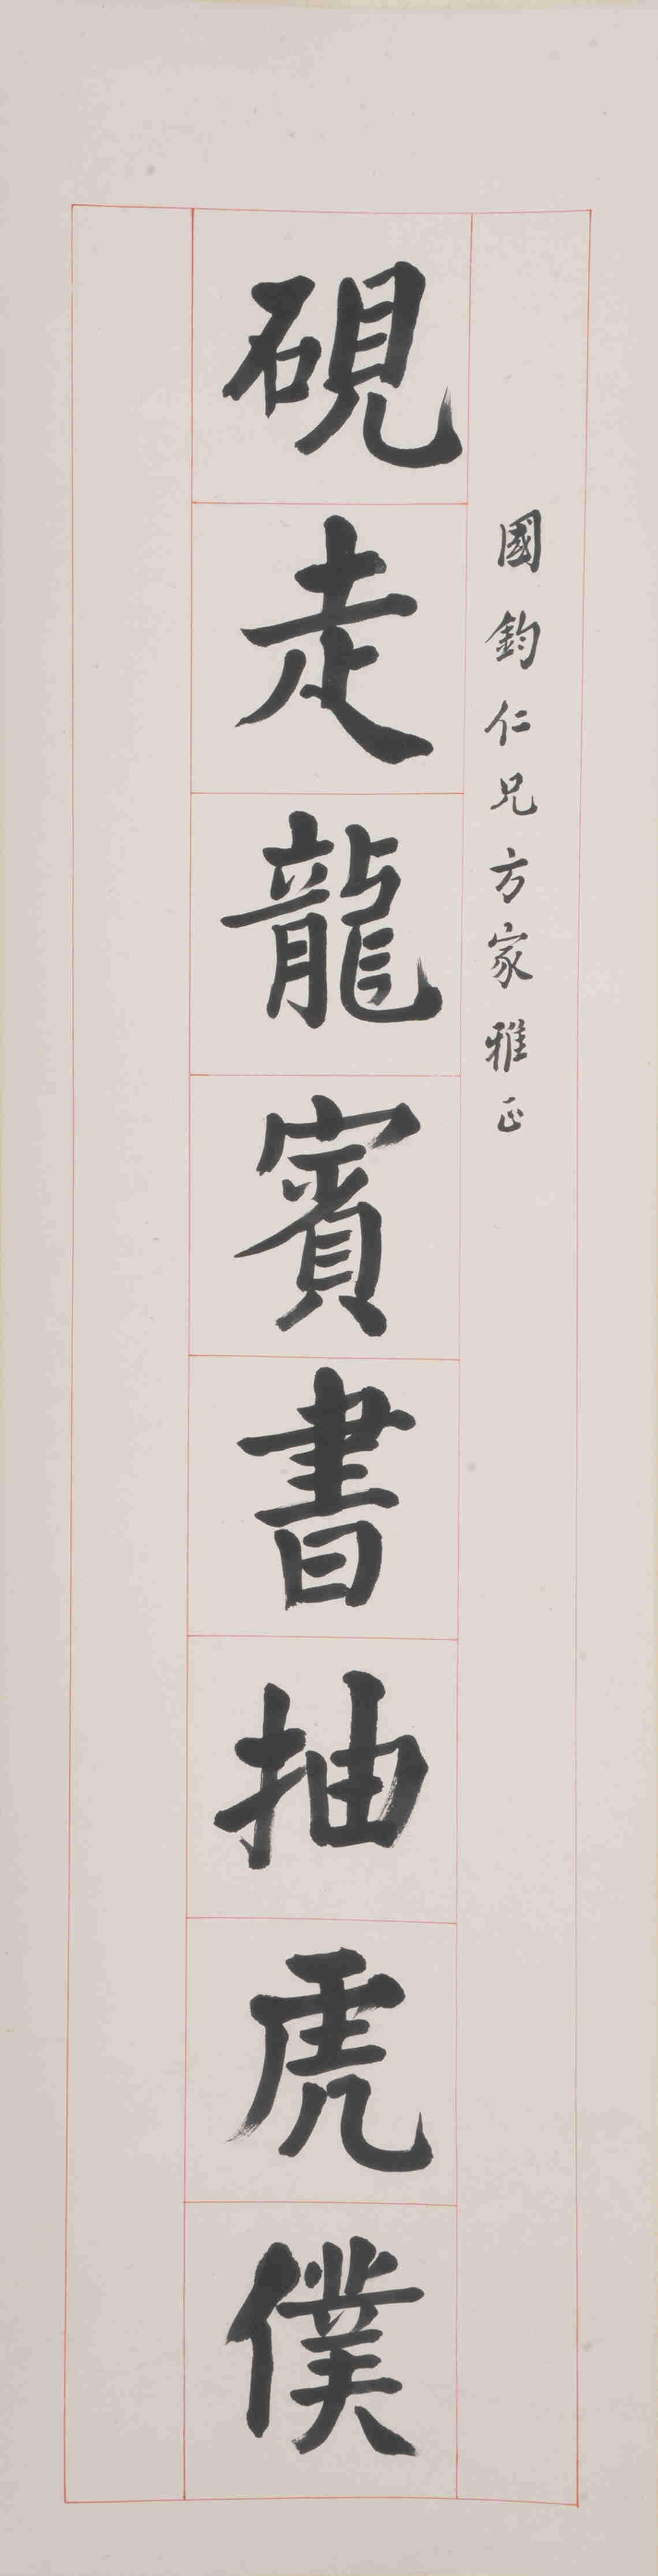 國鈞仁兄方家雅正
硯走龍賓書抽虎僕